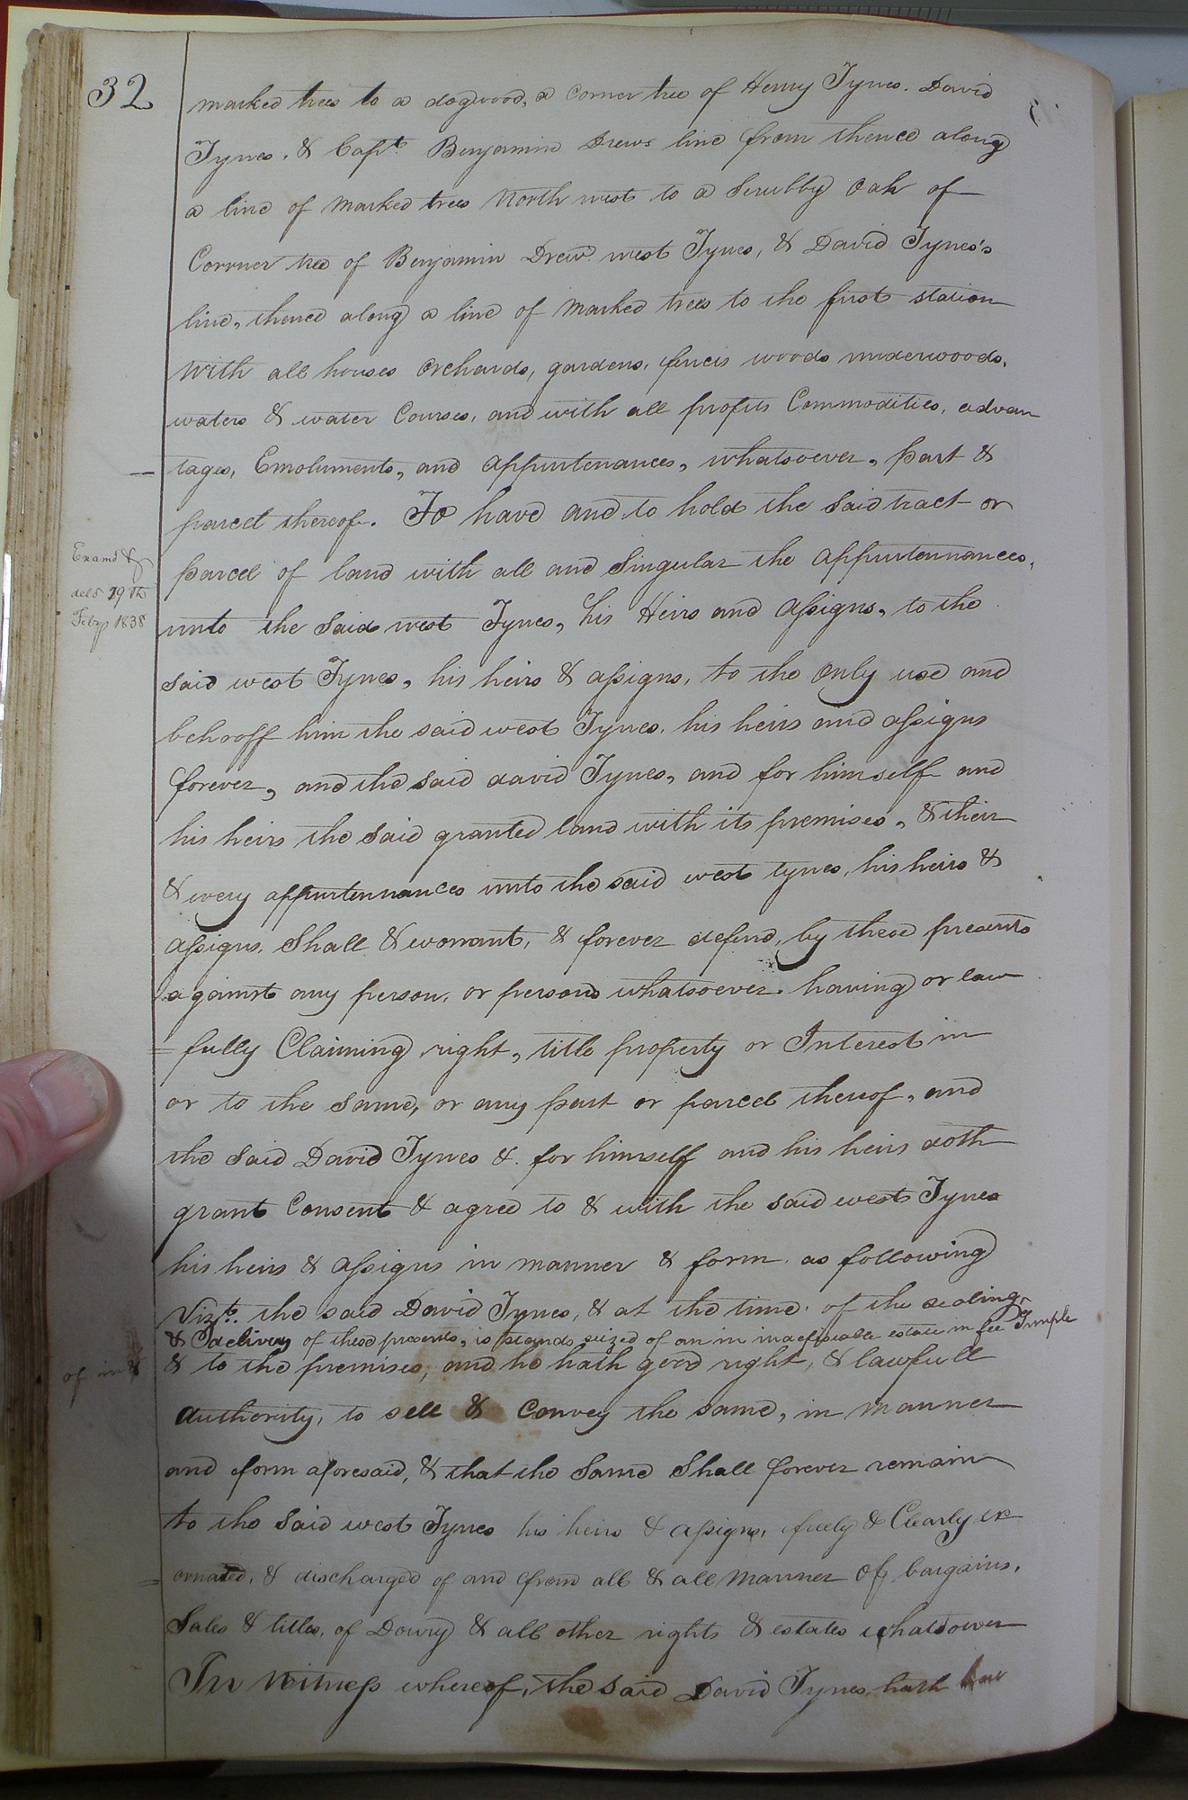 32
marked trees to a dogwood, a corner tree of Henry Tynes. David
Tynes. & Capt. Benjamin Drews line from thence along
a line of marked trees North west to a Scrubby Oak of
Corrner tree of Benjamin Drew west Tynes, & David Tynes's
line, thence along a line of marked trees to the first station
with all houses orchards, gardens, fences woods underwoods,
waters & water Courses, and with all profits Commodities, advan
tages, Emoluments, and appurtenances, whatsoever, part &
parcel thereof. To have and to hold the said tract or
Examd &
deld 19th
Feby 1838
parcel of land with all and Singular the appurtennances,
unto the said west Tynes, his Heirs and assigns, to the
said west Tynes, his heirs & assigns, to the only use and
behooff him the said west Tynes, his heirs and assigns
forever, and the said david Tynes, and for himself and
his heirs the said granted land with its premises, & their
& every appurtennances unto the said west tynes, his heirs &
assigns, Shall & warrant, & forever defend, by these presents
against any person, or persons whatsoever. having or law
= fully Claiming right, title property or Interest in
or to the same, or any part or parcel thereof, and
the said David Tynes &. for himself and his heirs doth
grant Consent & agree to & with the said west Tynes
his heirs & assigns in manner & form as following
Vizt. the said David Tynes, & at the time of the sealing
& delivery of these presents, is stands seized of an in indefisable estate in fee Simple
of in &
& to the premises, and he hath good right, & lawfull
authority, to sell & Convey the same, in manner
and form aforesaid, & that the same Shall forever remain
to the said west Tynes his heirs & assigns, freely & Clearly ex
= ornated, & discharged of and from all & all manner of bargains,
Sales & titles, of Dowry & all other rights & estates whatsower
In Witness whereof, the said David Tynes, hath